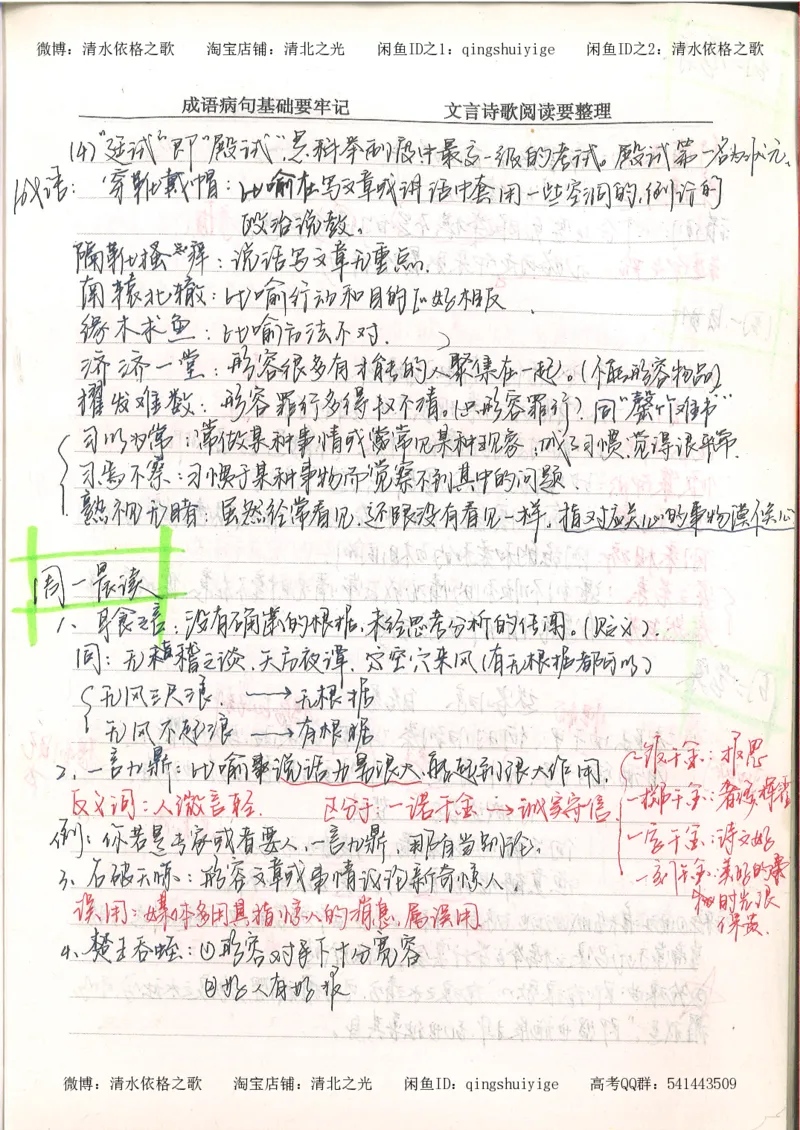 微博：清水依格之歌 淘宝店铺：清北之光 闲鱼ID之1：qingshuiyige 闲鱼ID之2：清水依格之歌
成语病句基础要牢记 文言诗歌阅读要整理
(4)“廷试”即“殿试”是科举制度中最高一级的考试。殿试第一名为状元。
成语：穿靴戴帽：比喻在写文章或讲话中套用一些空洞的，例行的
政治说教。
隔靴搔痒：说话写文章无重点.
南辕北辙：比喻行动和目的正好相反.
缘木求鱼：比喻方法不对.
济济一堂：形容很多有才能的人聚集在一起。(不能形容物品)
擢发难数：形容罪行多得数不清。(只形容罪行)同“罄竹难书”
习以为常：常做某种事情或常见某种现象，成了习惯，觉得很平常.
习焉不察：习惯于某种事物而觉察不到其中的问题
熟视无睹：虽然经常看见，还跟没有看见一样，指对应关心的事物漠不关心
周一晨读
1、耳食之言：没有确凿的根据，未经思考分析的传闻。(贬义)
同：无稽之谈，天方夜谭，空穴来风(有无根据都可以)
无风三尺浪 → 无根据
无风不起浪 → 有根据
2、一言九鼎：比喻说话力量很大，能起到很大作用.
反义词：人微言轻. 区分于：一诺千金→诚实守信.
一饭千金：报恩
一掷千金：奢侈挥霍
一字千金：诗文好
一刻千金：美好的事物时光很
例：你若是专家或者要人，一言九鼎，那有当别论.
3、石破天惊：形容文章或事情议论新奇惊人.
误用：媒体多用其指惊人的消息，属误用.
4、楚王吞蛭：①形容对手下十分宽容
②好人有好报
微博：清水依格之歌 淘宝店铺：清北之光 闲鱼ID：qingshuiyige 高考QQ群：541443509